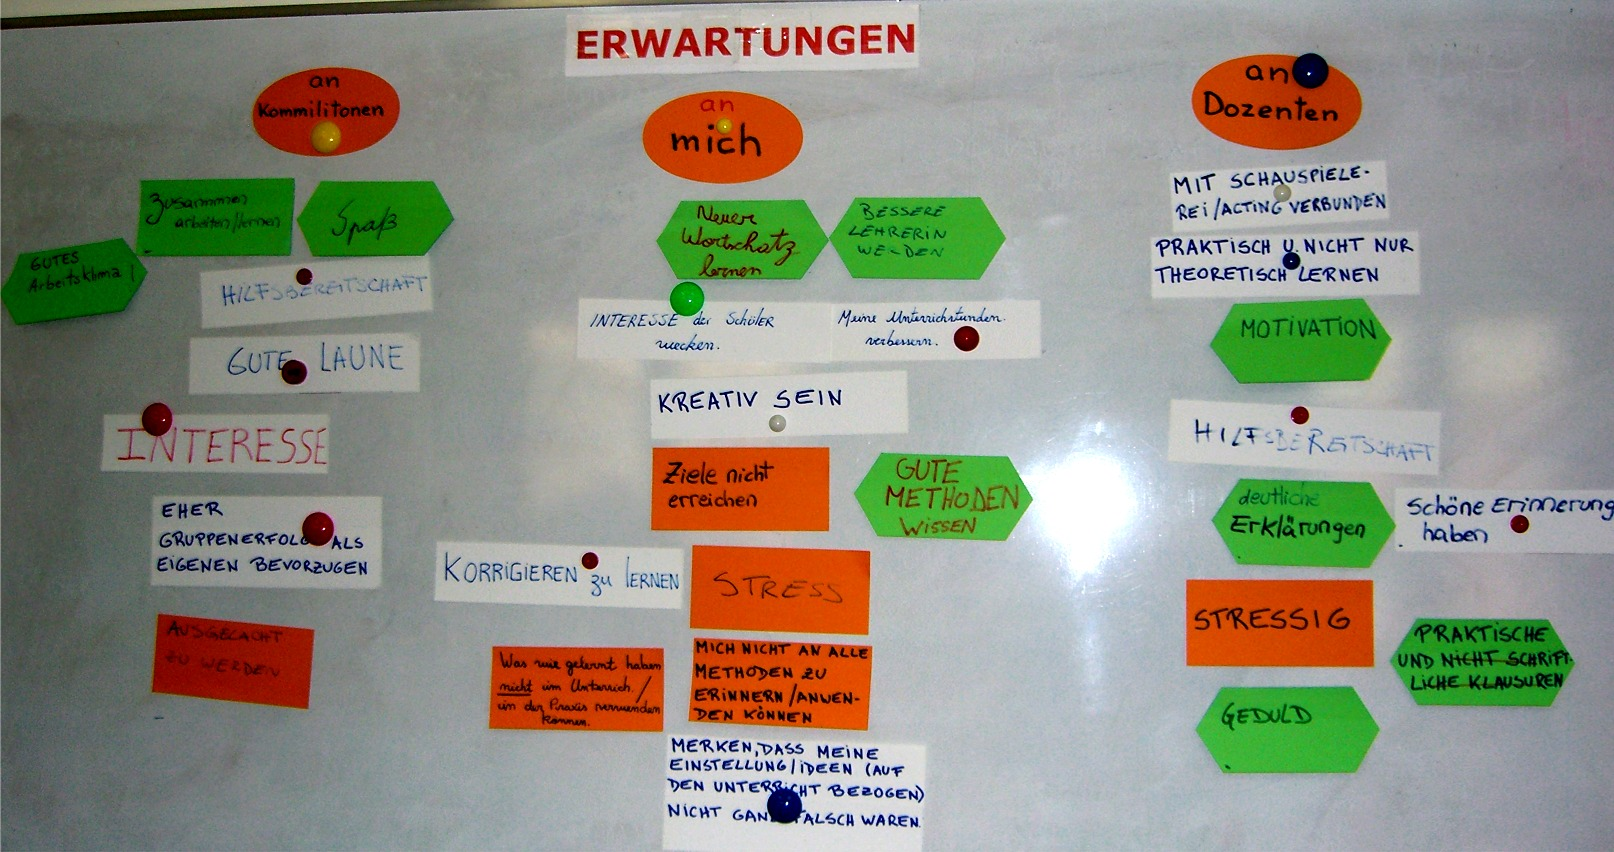 ERWARTUNGEN
an
Kommilitonen
Zusammen
arbeiten/lernen
Spaß
GUTES
Arbeitsklima!
HILFSBEREITSCHAFT
GUTE LAUNE
INTERESSE
EHER
GRUPPENERFOLG ALS
EIGENEN BEVORZUGEN
AUSGELACHT
ZU WERDEN
an
mich
Neuer
Wortschatz
lernen
BESSERE
LEHRERIN
WERDEN
INTERESSE der Schüler
wecken.
Meine Unterrichtstunden
verbessern.
KREATIV SEIN
Ziele nicht
erreichen
GUTE
METHODEN
WISSEN
KORRIGIEREN zu LERNEN
STRESS
Was wir gelernt haben
nicht im Unterrich./
in der Praxis verwenden
können.
MICH NICHT AN ALLE
METHODEN ZU
ERINNERN/ANWEN-
DEN KÖNNEN
MERKEN, DASS MEINE
EINSTELLUNG/IDEEN (AUF
DEN UNTERRICHT BEZOGEN)
NICHT GANZ FALSCH WAREN.
an
Dozenten
MIT SCHAUSPIELE-
REI/ACTING VERBUNDEN
PRAKTISCH U. NICHT NUR
THEORETISCH LERNEN
MOTIVATION
HILFSBEREITSCHAFT
deutliche
Erklärungen
Schöne Erinnerung
haben
STRESSIG
PRAKTISCHE
UND NICHT SCHRIFT-
LICHE KLAUSUREN
GEDULD